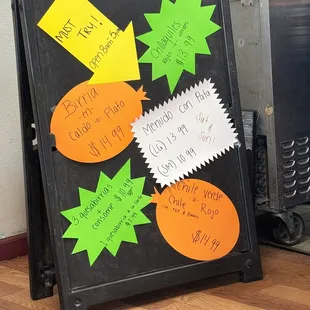 MUST
TRY!
OPEN 8am-5pm
Chilaquiles
$13.99
Birria
-en-
Caldo or Plato
$14.99
Menudo con Pata
(LG) 13.99
(SM) 10.99
Sat &
Sun!
3 quesabirrias
+
consome $10.99
1 quesabirria
Chile Verde
or
Chile Rojo
$14.99